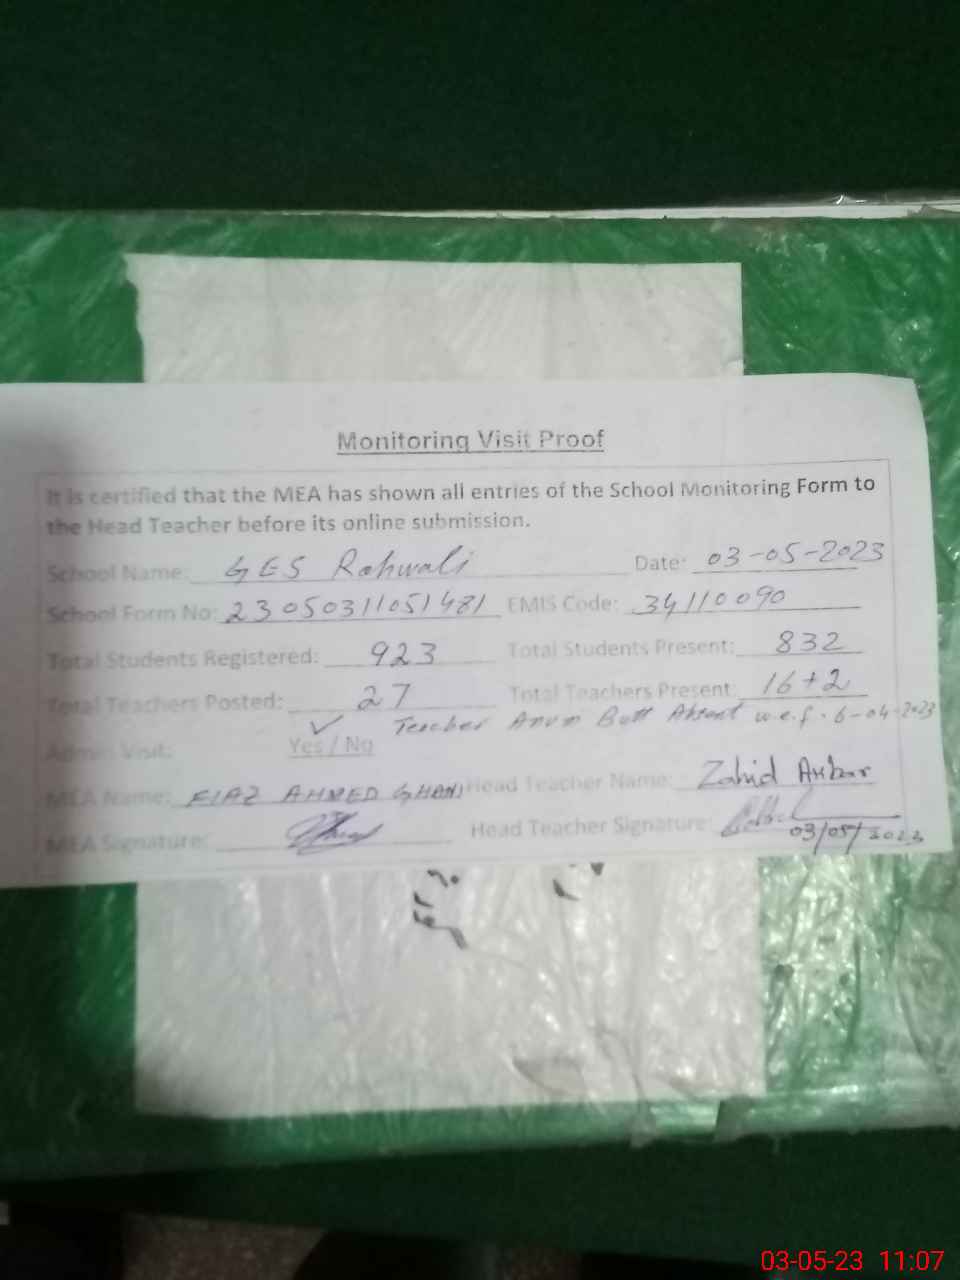 Monitoring Visit Proof
It is certified that the MEA has shown all entries of the School Monitoring Form to
the Head Teacher before its online submission.
School Name: GES Rahwali Date: 03-05-2023
School Form No: 23050311051481 EMIS Code: 34110090
Total Students Registered: 923 Total Students Present: 832
Total Teachers Posted: 27 Total Teachers Present: 16+2
✓ Teacher Anum Butt Absent w.e.f. 6-04-2023
Admin Visit: Yes / No
MEA Name: FIAZ AHMED GHANI Head Teacher Name: Zahid Akbar
MEA Signature: Head Teacher Signature:
03/05/2023
03-05-23 11:07